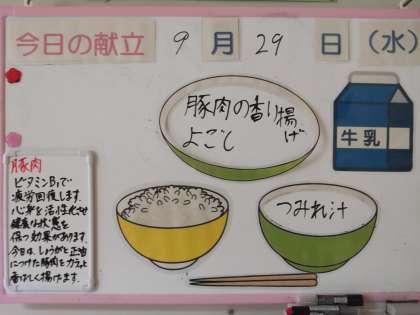 今日の献立 9月29日(水)
豚肉の香り揚げ
よごし
牛乳
つみれ汁
豚肉
ビタミンB₁で
疲労回復します。
心身を活性化させ
健康な状態を
保つ効果があります。
今日は、しょうがと正油
につけた豚肉をカラッと
香ばしく揚げます。